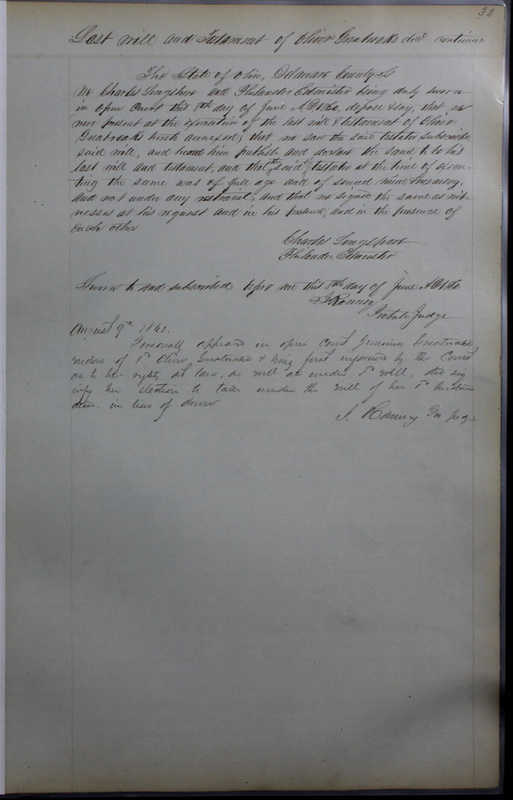 33
Last will and Testament of Oliver decd continued
The State of Ohio, County SS
We Charles and Philander Edmister being duly sworn
in open Court this day of June AD 1860 depose & say, that we
were present at the execution of the last will & testament of Oliver
hereto annexed; that we saw the said testator subscribe
said will, and heard him publish and declare the same to be his
last will and testament, and that the said testator at the time of execu-
ting the same was of full age and of sound mind & memory,
and not under any restraint; and that we signed the same as wit-
nesses at his request and in his presence, and in the presence of
each other
Charles
Philander Edmister
Sworn to and subscribed before me this day of June AD 1860
Ranney
Probate Judge
August 9th 1860.
Personally appeared in open Court Jemima
widow of Oliver & being first informed by the Court
as to her rights at law, as well as under will, did sig
nify her election to take under the will of her
in lieu of dower
J. Ranney Judge